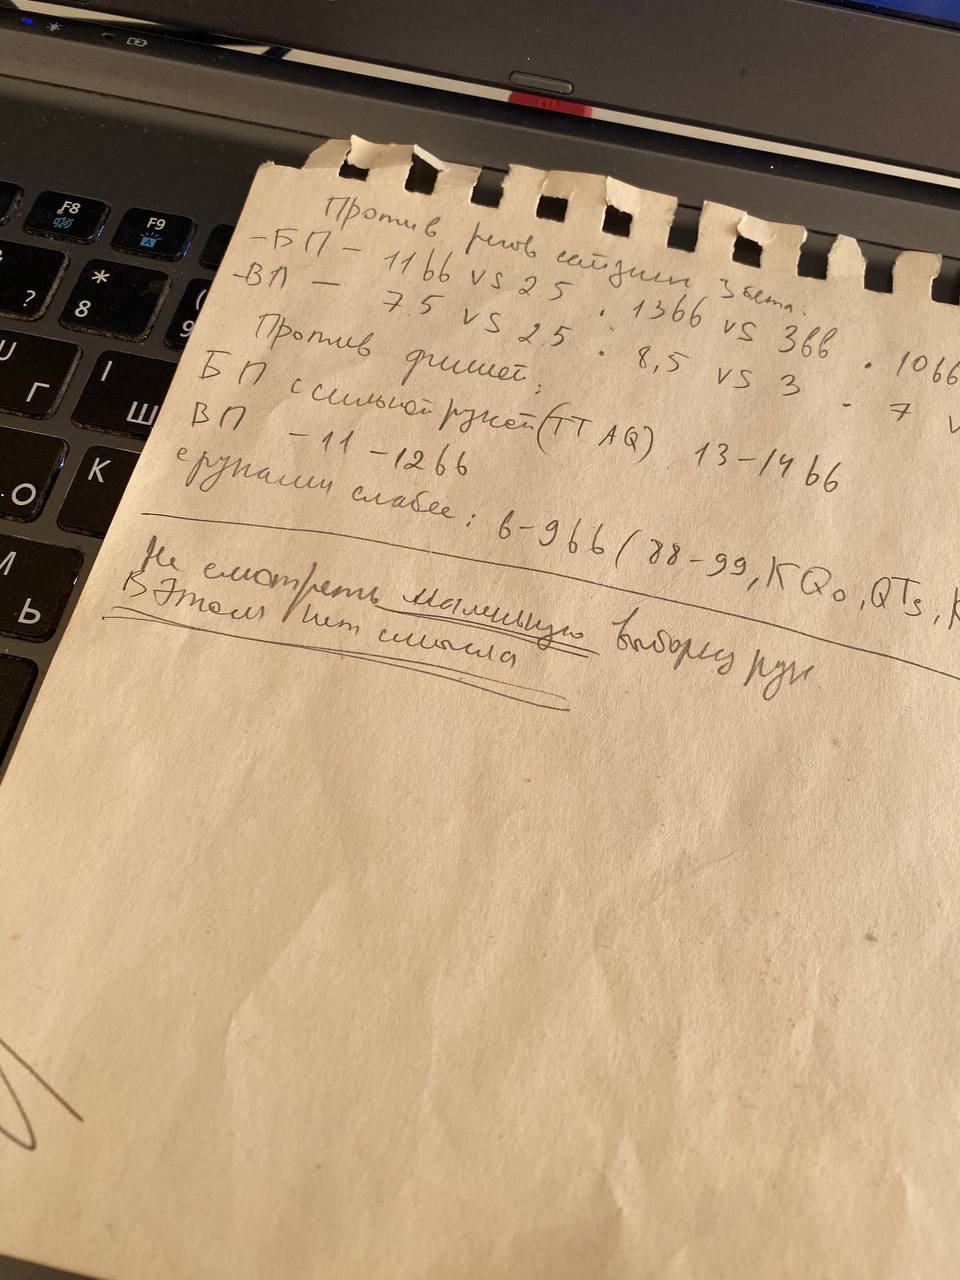 F8
F9
*
8
?
(
9
U
Г
I
Ш
О
К
М
Ь
Против регов сайзинг 3бета:
-БП - 11bb vs 2.5 · 13bb vs 3bb · 10bb
-ВП - 7.5 vs 2.5 · 8,5 vs 3 · 7 v
Против фишей:
БП с сильной рукой (TT AQ) 13-14bb
ВП -11-12bb
с руками слабее: 6-9bb (88-99, KQo, QTs, K
Не смотреть маленькую выборку рук
В этом нет смысла